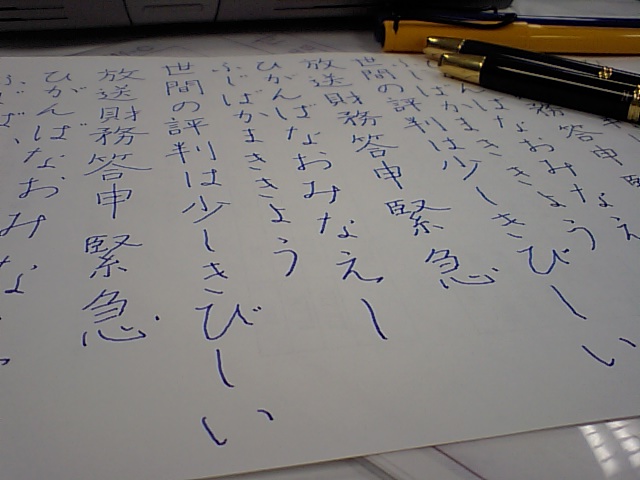 務答申 緊
ばなおみなえ
じばかまききょう
世間の評判は少しきびしい
放送財務答申 緊急
ひがんばなおみなえし
ふじばかまききょう
世間の評判は少しきびしい
放送財務答申 緊急
ひがんばなおみな
ふじば